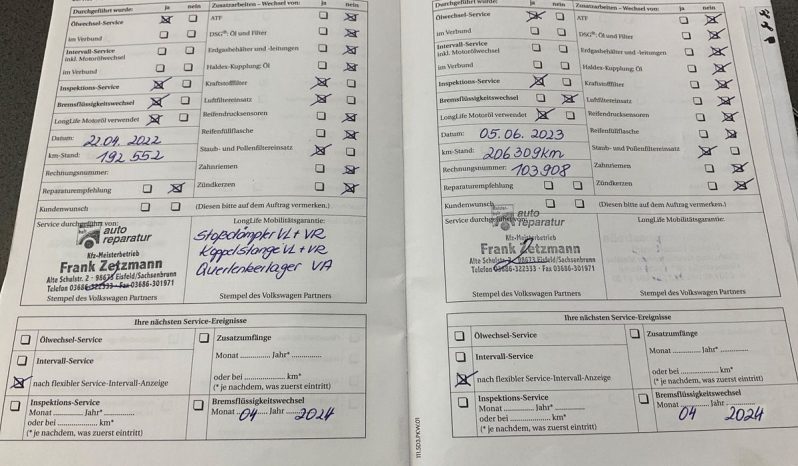 Durchgeführt wurde: ja nein
Ölwechsel-Service
im Verbund
Intervall-Service
inkl. Motorölwechsel
im Verbund
Inspektions-Service
Bremsflüssigkeitswechsel
LongLife Motoröl verwendet
Datum: 22.04. 2022
km-Stand: 192 552
Rechnungsnummer:
Reparaturempfehlung
Kundenwunsch
Zusatzarbeiten – Wechsel von: ja nein
ATF
DSG®: Öl und Filter
Erdgasbehälter und -leitungen
Haldex-Kupplung: Öl
Kraftstofffilter
Luftfiltereinsatz
Reifendrucksensoren
Reifenfüllflasche
Staub- und Pollenfiltereinsatz
Zahnriemen
Zündkerzen
(Diesen bitte auf dem Auftrag vermerken.)
Service durchgeführt von:
auto
reparatur
Kfz-Meisterbetrieb
Frank Zetzmann
Alte Schulstr. 2 - 98673 Eisfeld/Sachsenbrunn
Telefon 03686-322333 - Fax 03686-301971
Stempel des Volkswagen Partners
LongLife Mobilitätsgarantie:
Stoßdämpfer VL + VR
Koppelstange VL + VR
Querlenkerlager VA
Stempel des Volkswagen Partners
Ihre nächsten Service-Ereignisse
Ölwechsel-Service
Intervall-Service
nach flexibler Service-Intervall-Anzeige
Inspektions-Service
Monat .......... Jahr* ..........
oder bei .......... km*
(* je nachdem, was zuerst eintritt)
Zusatzumfänge
Monat .......... Jahr* ..........
oder bei .......... km*
(* je nachdem, was zuerst eintritt)
Bremsflüssigkeitswechsel
Monat 04 Jahr 2024
Durchgeführt wurde: ja nein
Ölwechsel-Service
im Verbund
Intervall-Service
inkl. Motorölwechsel
im Verbund
Inspektions-Service
Bremsflüssigkeitswechsel
LongLife Motoröl verwendet
Datum: 05. 06. 2023
km-Stand: 206 309 km
Rechnungsnummer: 103 908
Reparaturempfehlung
Kundenwunsch
Zusatzarbeiten – Wechsel von: ja nein
ATF
DSG®: Öl und Filter
Erdgasbehälter und -leitungen
Haldex-Kupplung: Öl
Kraftstofffilter
Luftfiltereinsatz
Reifendrucksensoren
Reifenfüllflasche
Staub- und Pollenfiltereinsatz
Zahnriemen
Zündkerzen
(Diesen bitte auf dem Auftrag vermerken.)
Service durchgeführt von:
auto
reparatur
Kfz-Meisterbetrieb
Frank Zetzmann
Alte Schulstr. 2 - 98673 Eisfeld/Sachsenbrunn
Telefon 03686-322333 - Fax 03686-301971
Stempel des Volkswagen Partners
LongLife Mobilitätsgarantie:
Stempel des Volkswagen Partners
Ihre nächsten Service-Ereignisse
Ölwechsel-Service
Intervall-Service
nach flexibler Service-Intervall-Anzeige
Inspektions-Service
Monat .......... Jahr* ..........
oder bei .......... km*
(* je nachdem, was zuerst eintritt)
Zusatzumfänge
Monat .......... Jahr* ..........
oder bei .......... km*
(* je nachdem, was zuerst eintritt)
Bremsflüssigkeitswechsel
Monat 04 Jahr 2024
111.5D3.PKW.01